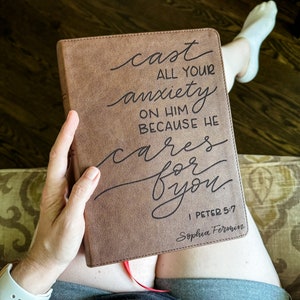 cast
ALL YOUR
anxiety
ON HIM
BECAUSE HE
cares
for
you
1 PETER 5:7
Sophia Fermin